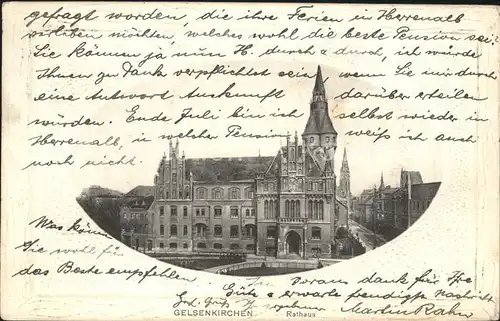 gefragt worden, die ihre Ferien in Herrenalb
verleben möchten, welches wohl die beste Pension sei?
Sie können ja nun H. durch & durch, ich würde
Ihnen zu Dank verpflichtet sein wenn Sie mir durch
eine Antwort Auskunft darüber erteilen
würden. Ende Juli bin ich selbst wieder in
Herrenalb, in welcher Pension weiß ich auch
noch nicht.
Was können
Sie wohl für
das Beste empfehlen
voraus dankt für Ihre
Güte & erwarte freundlichst Nachricht
Martin Rahn
GELSENKIRCHEN Rathaus